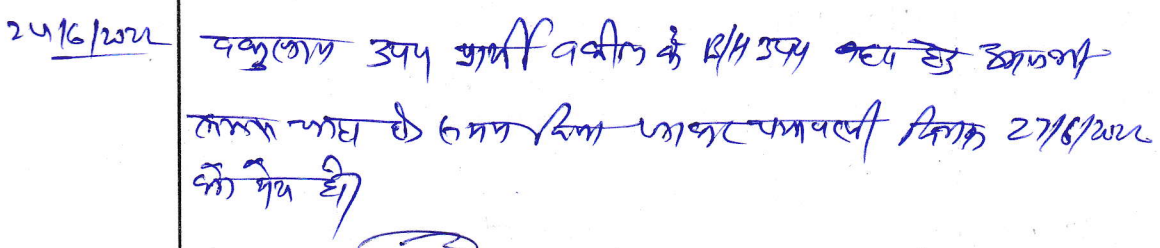 24/6/2022 वकुलाय उपप प्रार्थी वकील के B/H उपप बहस हेतु
समय चाहा है। समय दिया जाकर पत्रावली दिनांक 27/6/2022
को पेश हो।